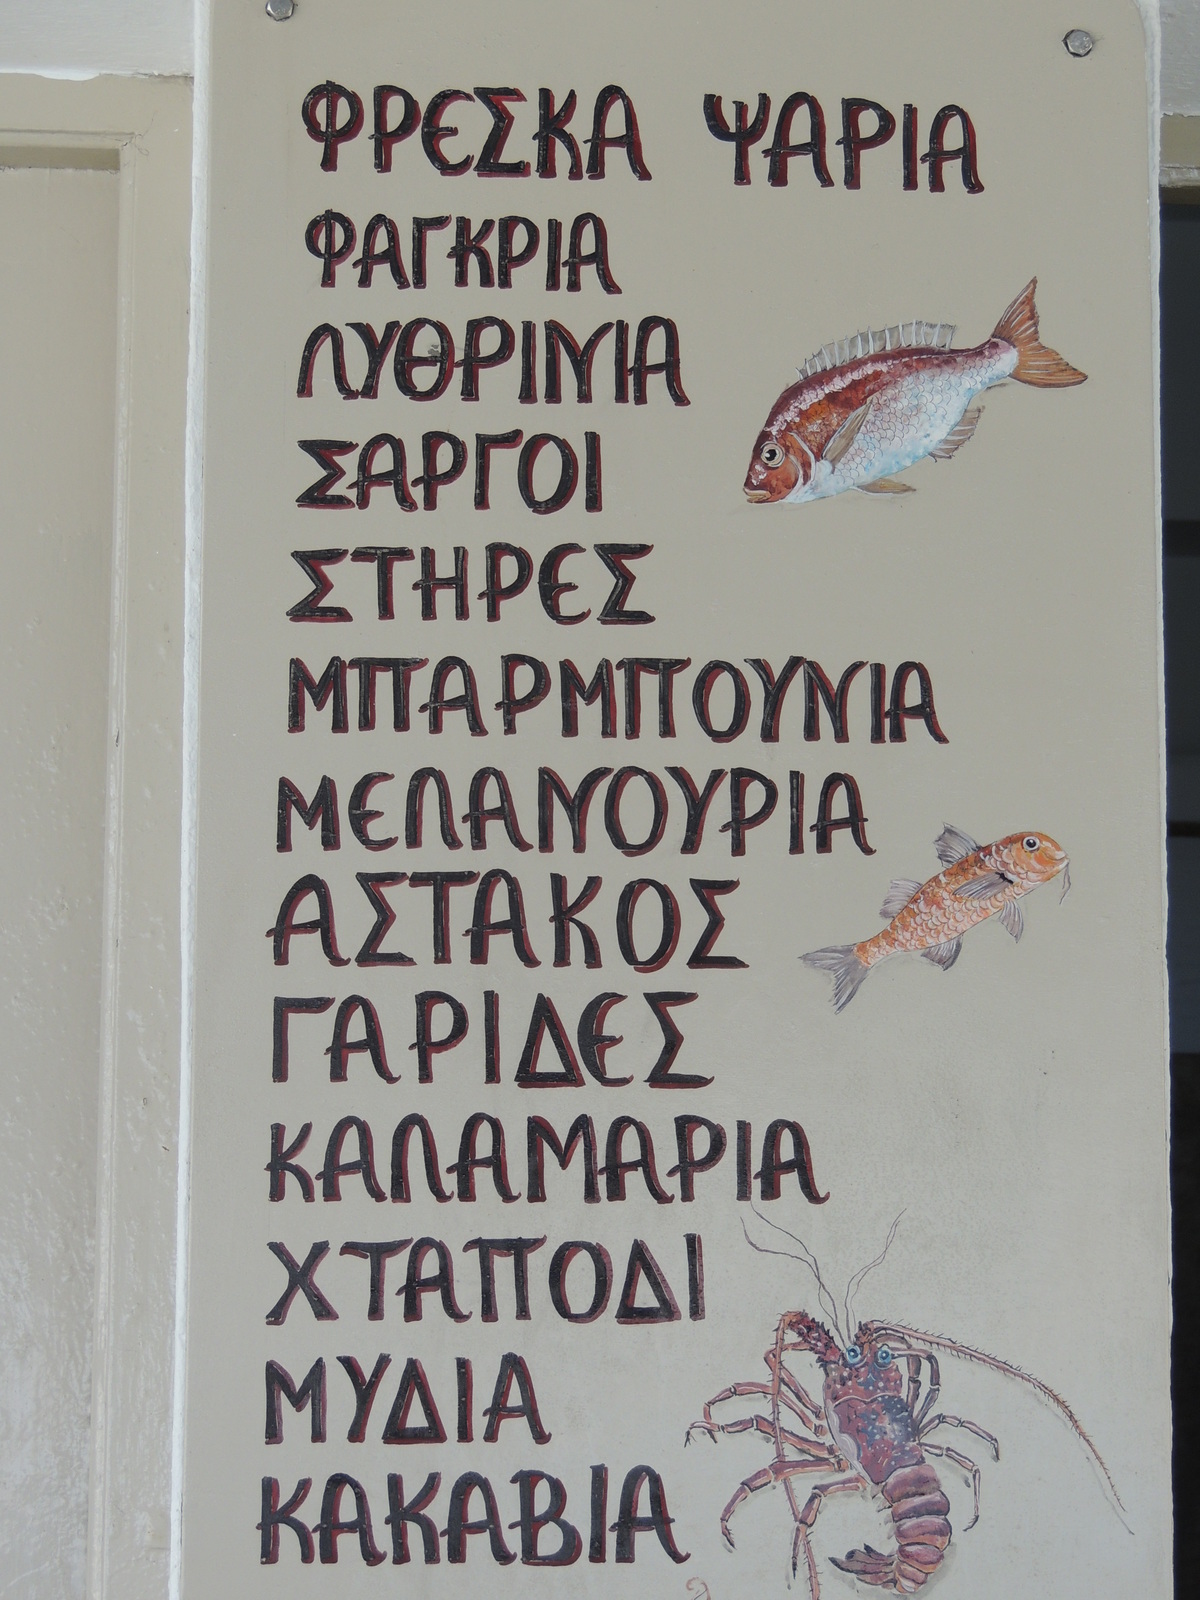 ΦΡΕΣΚΑ ΨΑΡΙΑ
ΦΑΓΚΡΙΑ
ΛΥΘΡΙΝΙΑ
ΣΑΡΓΟΙ
ΣΤΗΡΕΣ
ΜΠΑΡΜΠΟΥΝΙΑ
ΜΕΛΑΝΟΥΡΙΑ
ΑΣΤΑΚΟΣ
ΓΑΡΙΔΕΣ
ΚΑΛΑΜΑΡΙΑ
ΧΤΑΠΟΔΙ
ΜΥΔΙΑ
ΚΑΚΑΒΙΑ